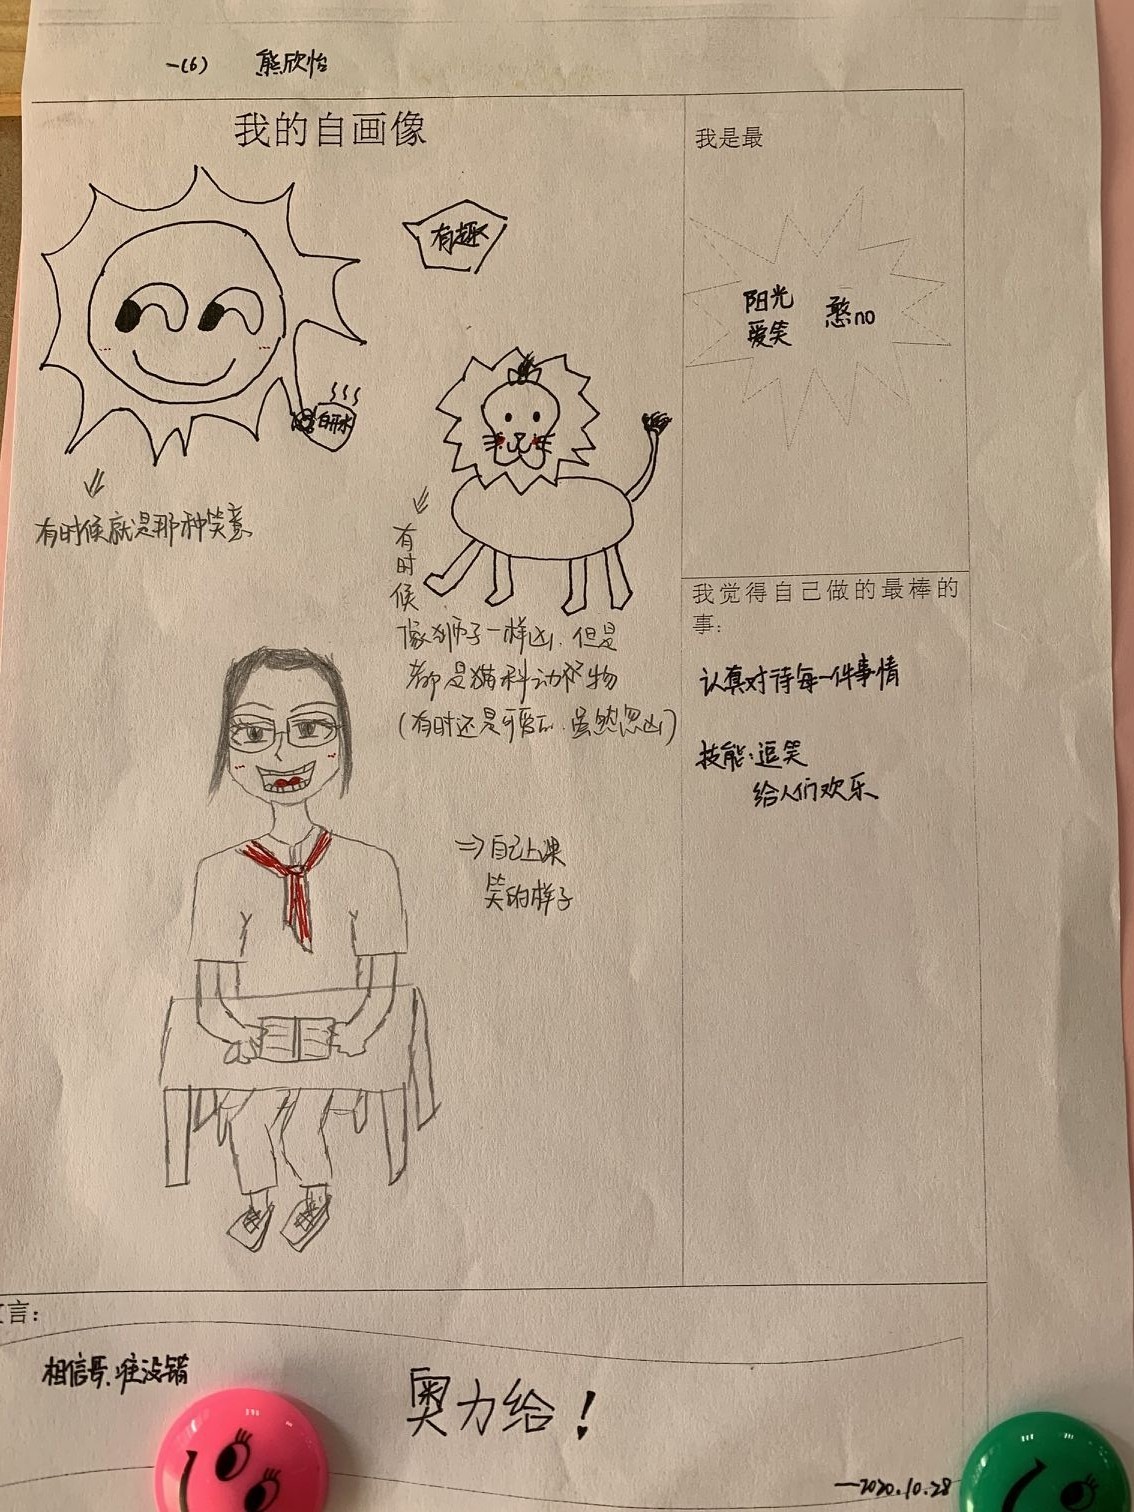 一(6) 熊欣怡
我的自画像
有趣
白开水
有时候就是那种笑意
有时候
像狮子一样凶.但是
都是猫科动物
(有时还是可爱的.虽然忽凶)
⇒自己上课
笑的样子
我是最
阳光
爱笑
憨no
我觉得自己做的最棒的
事:
认真对待每一件事情
技能:逗笑
给人们欢乐
言:
相信哥.准没错
奥力给!
—2020.10.28